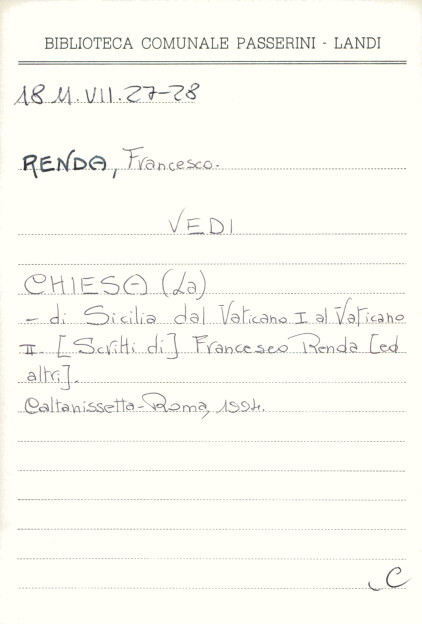 BIBLIOTECA COMUNALE PASSERINI - LANDI
18 M.VII.27-28
RENDA, Francesco.
VEDI
CHIESA (La)
- di Sicilia dal Vaticano I al Vaticano
II. [Scritti di] Francesco Renda [ed
altri].
Caltanissetta-Roma, 1994.
C